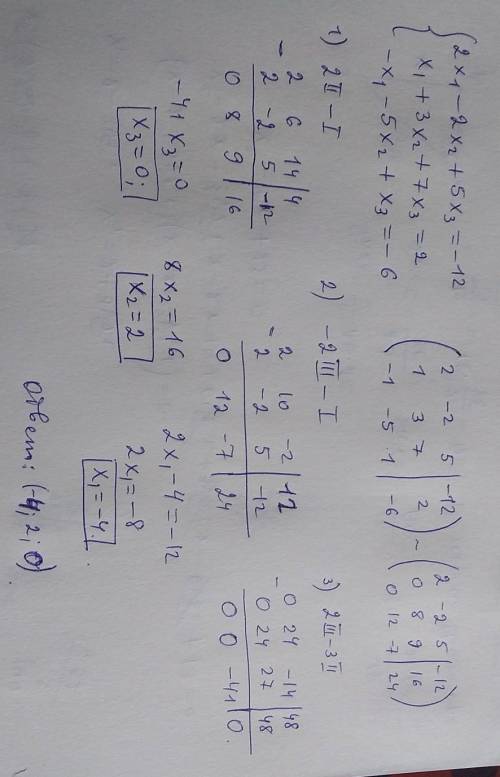 2x₁ - 2x₂ + 5x₃ = -12
x₁ + 3x₂ + 7x₃ = 2
-x₁ - 5x₂ + x₃ = -6
2 -2 5 | -12
1 3 7 | 2
-1 -5 1 | -6
~
2 -2 5 | -12
0 8 9 | 16
0 12 7 | 24
1) 2II - I
2 6 14 | 4
- 2 -2 5 | -12
0 8 9 | 16
2) -2III - I
2 10 -2 | 12
- 2 -2 5 | -12
0 12 -7 | 24
3) 2III - 3II
- 0 24 -14 | 48
0 24 27 | 48
0 0 -41 | 0.
-41x₃ = 0
x₃ = 0;
8x₂ = 16
x₂ = 2
2x₁ - 4 = -12
2x₁ = -8
x₁ = -4.
Ответ: (-4; 2; 0)